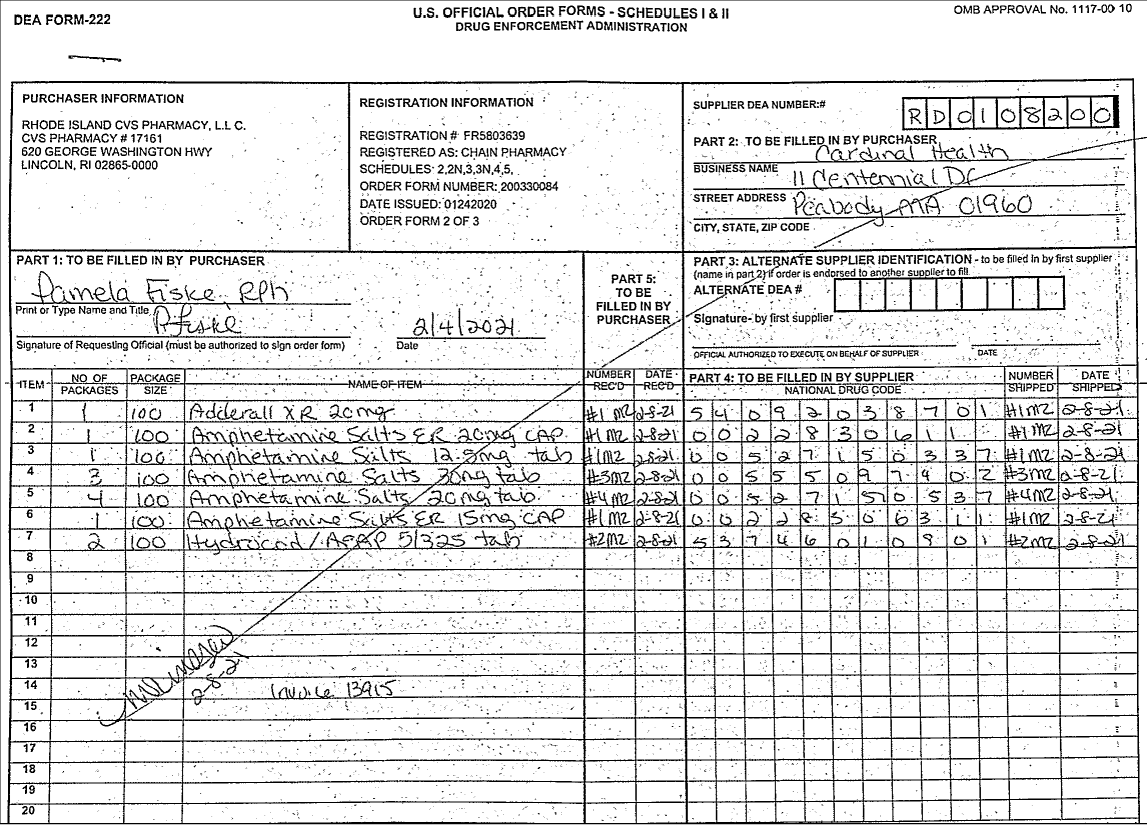 DEA FORM-222
U.S. OFFICIAL ORDER FORMS - SCHEDULES I & II
DRUG ENFORCEMENT ADMINISTRATION
OMB APPROVAL No. 1117-0010
PURCHASER INFORMATION
RHODE ISLAND CVS PHARMACY, L.L C.
CVS PHARMACY # 17161
620 GEORGE WASHINGTON HWY
LINCOLN, RI 02865-0000
REGISTRATION INFORMATION
REGISTRATION #: FR5803639
REGISTERED AS: CHAIN PHARMACY
SCHEDULES: 2,2N,3,3N,4,5,
ORDER FORM NUMBER: 200330084
DATE ISSUED: 01242020
ORDER FORM 2 OF 3
SUPPLIER DEA NUMBER:# RD0108200
PART 2: TO BE FILLED IN BY PURCHASER
Cardinal Health
BUSINESS NAME
11 Centennial Dr
STREET ADDRESS
Peabody MA 01960
CITY, STATE, ZIP CODE
PART 1: TO BE FILLED IN BY PURCHASER
Pamela Fiske, RPh
Print or Type Name and Title
PFiske
2/4/2021
Signature of Requesting Official (must be authorized to sign order form)
Date
PART 5:
TO BE
FILLED IN BY
PURCHASER
PART 3: ALTERNATE SUPPLIER IDENTIFICATION - to be filled in by first supplier
(name in part 2) if order is endorsed to another supplier to fill
ALTERNATE DEA #
Signature- by first supplier
OFFICIAL AUTHORIZED TO EXECUTE ON BEHALF OF SUPPLIER
DATE
ITEM
NO OF PACKAGES
PACKAGE SIZE
NAME OF ITEM
NUMBER REC'D
DATE REC'D
PART 4: TO BE FILLED IN BY SUPPLIER
NATIONAL DRUG CODE
NUMBER SHIPPED
DATE SHIPPED
1 1 100 Adderall XR 20mg #1 MZ 2-8-21 54092038701 #1MZ 2-8-21
2 1 100 Amphetamine Salts ER 20mg CAP #1 MZ 2-8-21 0022830611 #1 MZ 2-8-21
3 1 100 Amphetamine Salts 12.5mg tab #1MZ 2-8-21 00527150337 #1MZ 2-8-21
4 3 100 Amphetamine Salts 30mg tab #3MZ 2-8-21 00555097402 #3MZ 2-8-21
5 4 100 Amphetamine Salts 20mg tab #4MZ 2-8-21 00527150537 #4MZ 2-8-21
6 1 100 Amphetamine Salts ER 15mg CAP #1 MZ 2-8-21 00228506311 #1MZ 2-8-21
7 2 100 Hydrocod/APAP 5/325 tab #2MZ 2-8-21 53746010901 #2MZ 2-8-21
8
9
10
11
12
13
2-8-21
14 Invoice 13915
15
16
17
18
19
20